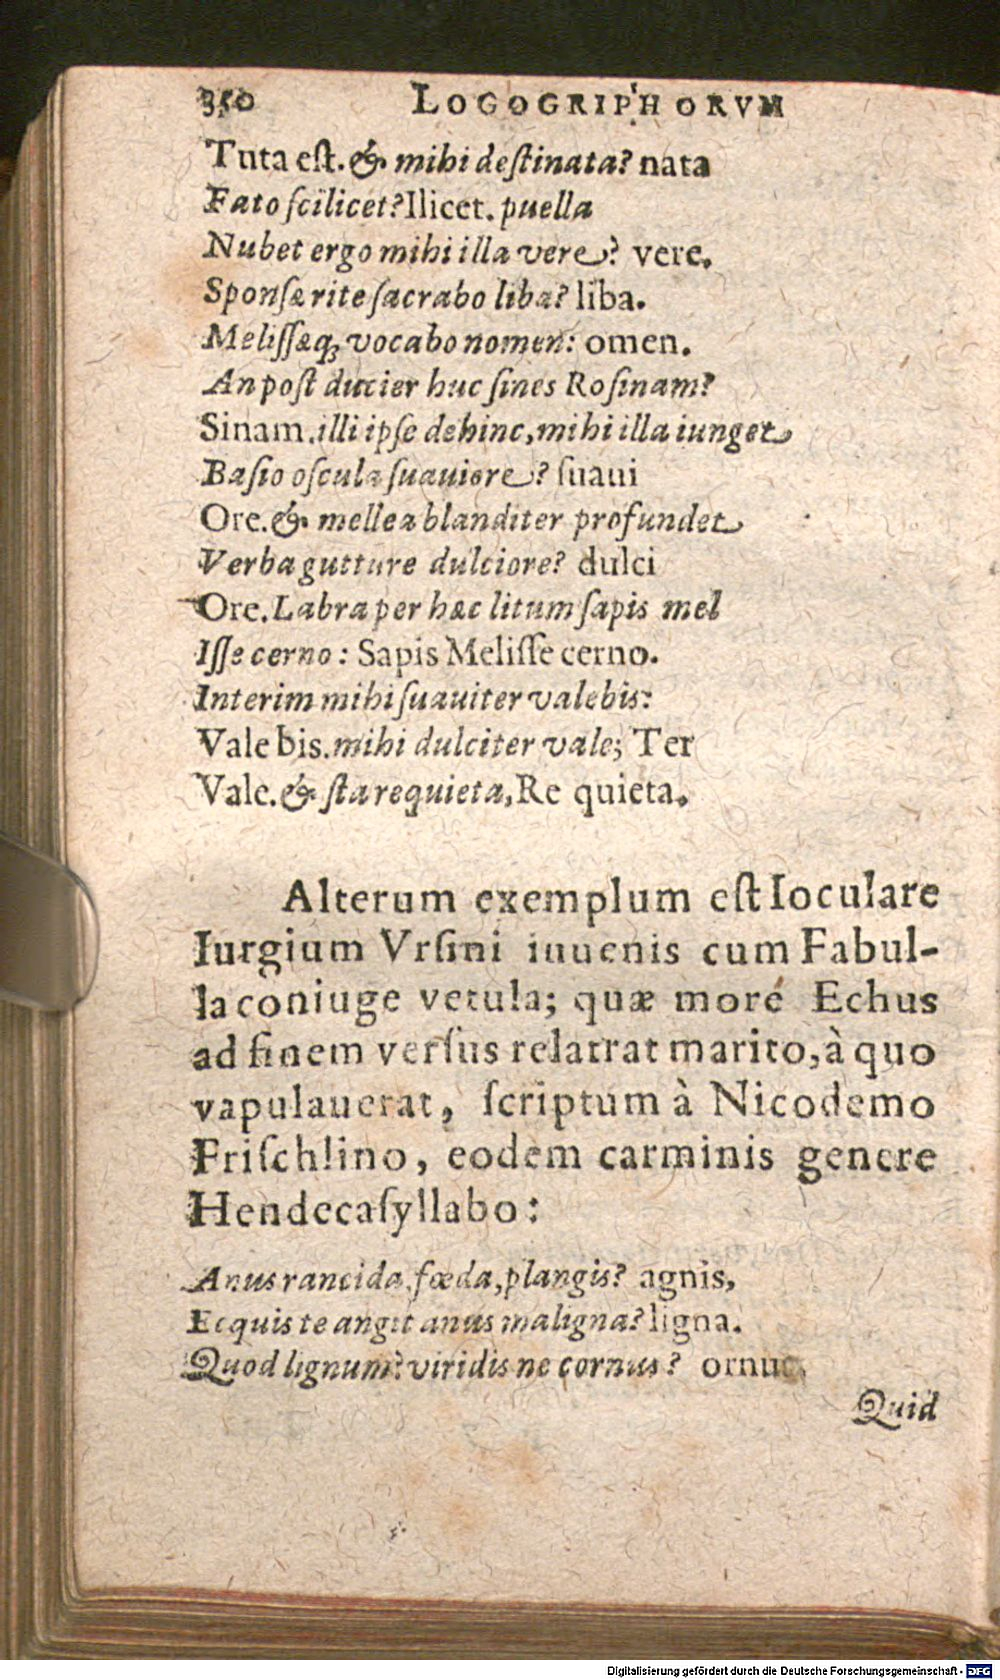 350 LOGOGRIPHORVM
Tuta eſt. & mihi deſtinata? nata
Fato ſcilicet? Ilicet. puella
Nubet ergo mihi illa vere? vere.
Sponſæ rite ſacrabo liba? liba.
Meliſſæq; vocabo nomen: omen.
An poſt ducier huc ſines Roſinam?
Sinam. illi ipſe dehinc, mihi illa iunget
Baſio oſcula ſuauiore? ſuaui
Ore. & mellea blanditer profundet
Verba gutture dulciore? dulci
Ore. Labra per hæc litum ſapis mel
Iſſe cerno: Sapis Meliſſe cerno.
Interim mihi ſuauiter valebis:
Vale bis. mihi dulciter vale; Ter
Vale. & ſta requieta, Re quieta.
Alterum exemplum eſt Ioculare
Iurgium Vrſini iuuenis cum Fabul-
la coniuge vetula; quæ more Echus
ad finem verſus relatrat marito, à quo
vapulauerat, ſcriptum à Nicodemo
Friſchlino, eodem carminis genere
Hendecaſyllabo:
Anus rancida, fœda, plangis? agnis,
Ecquis te angit anus maligna? ligna.
Quod lignum? viridis ne cornus? ornus.
Quid
Digitalisierung gefördert durch die Deutsche Forschungsgemeinschaft - DFG